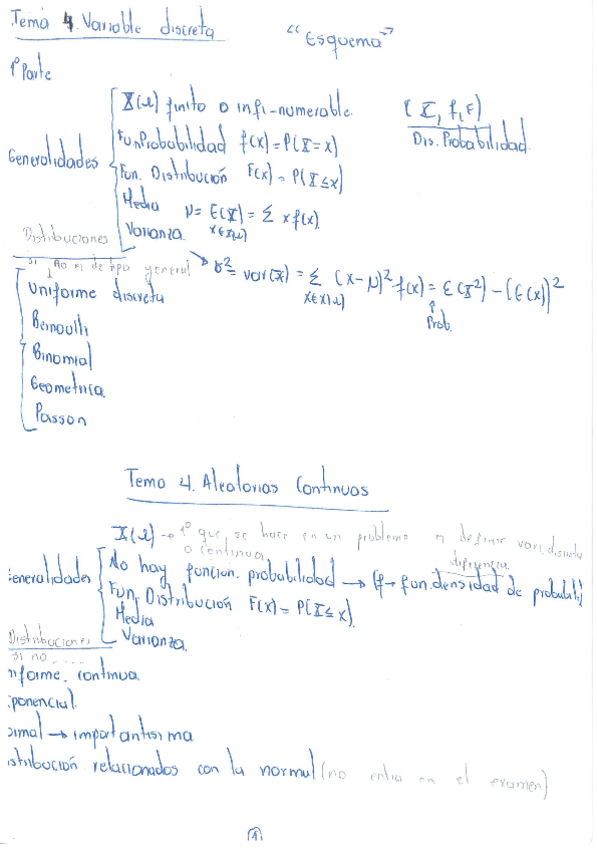 Tema 4. Variable discreta
"Esquema"
1ª Parte
Generalidades
X(Ω) finito o infi-numerable
Fun Probabilidad f(x) = P(X=x)
Fun. Distribución F(x) = P(X≤x)
Media μ = E(X) = Σ x f(x)
x∈X(Ω)
Varianza
(X, f, F)
Dis. Probabilidad
σ² = var(X) = Σ (x-μ)² f(x) = E(X²) - (E(x))²
x∈X(Ω)
↑
Prob.
Distribuciones
si no es de tipo general
Uniforme discreta
Bernoulli
Binomial
Geometrica
Poisson
Tema 4. Aleatorias Continuas
X(Ω) → 1º que se hace en un problema es definir vari. discreta
o continua
diferencia
Generalidades
No hay funcion. probabilidad → (f → fun. densidad de probabili)
Fun. Distribución F(x) = P(X≤x)
Media
Varianza
Distribuciones
si no ......
niforme. continua
xponencial
ormal → importantisima
istribución relacionados con la normal (no entra en el examen)
(1)